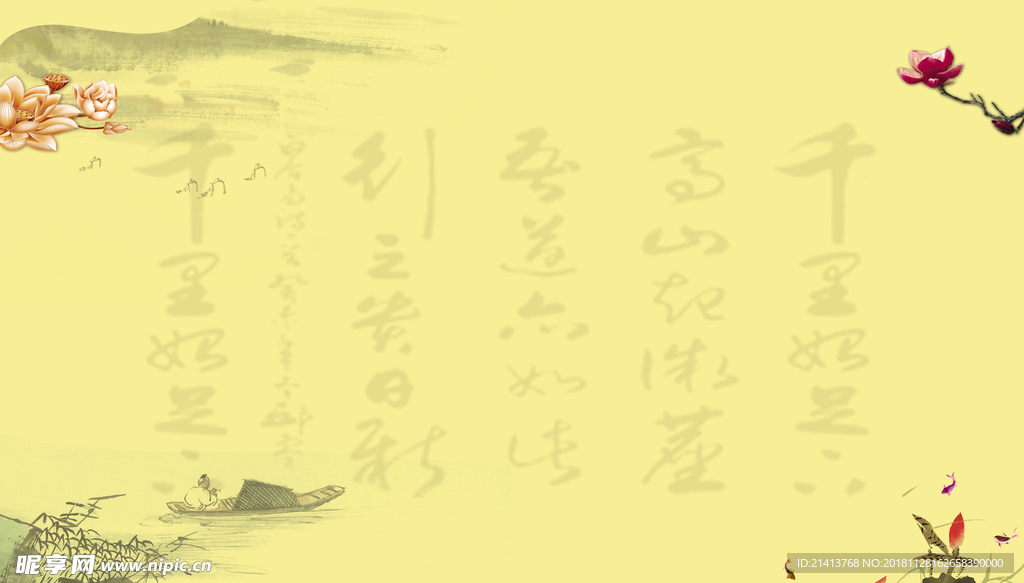 千里始足下
高山起微塵
吾道亦如此
行之貴日新
千里始足下
昵享网 www.nipic.cn
ID:21413768 NO:20181128162658390000